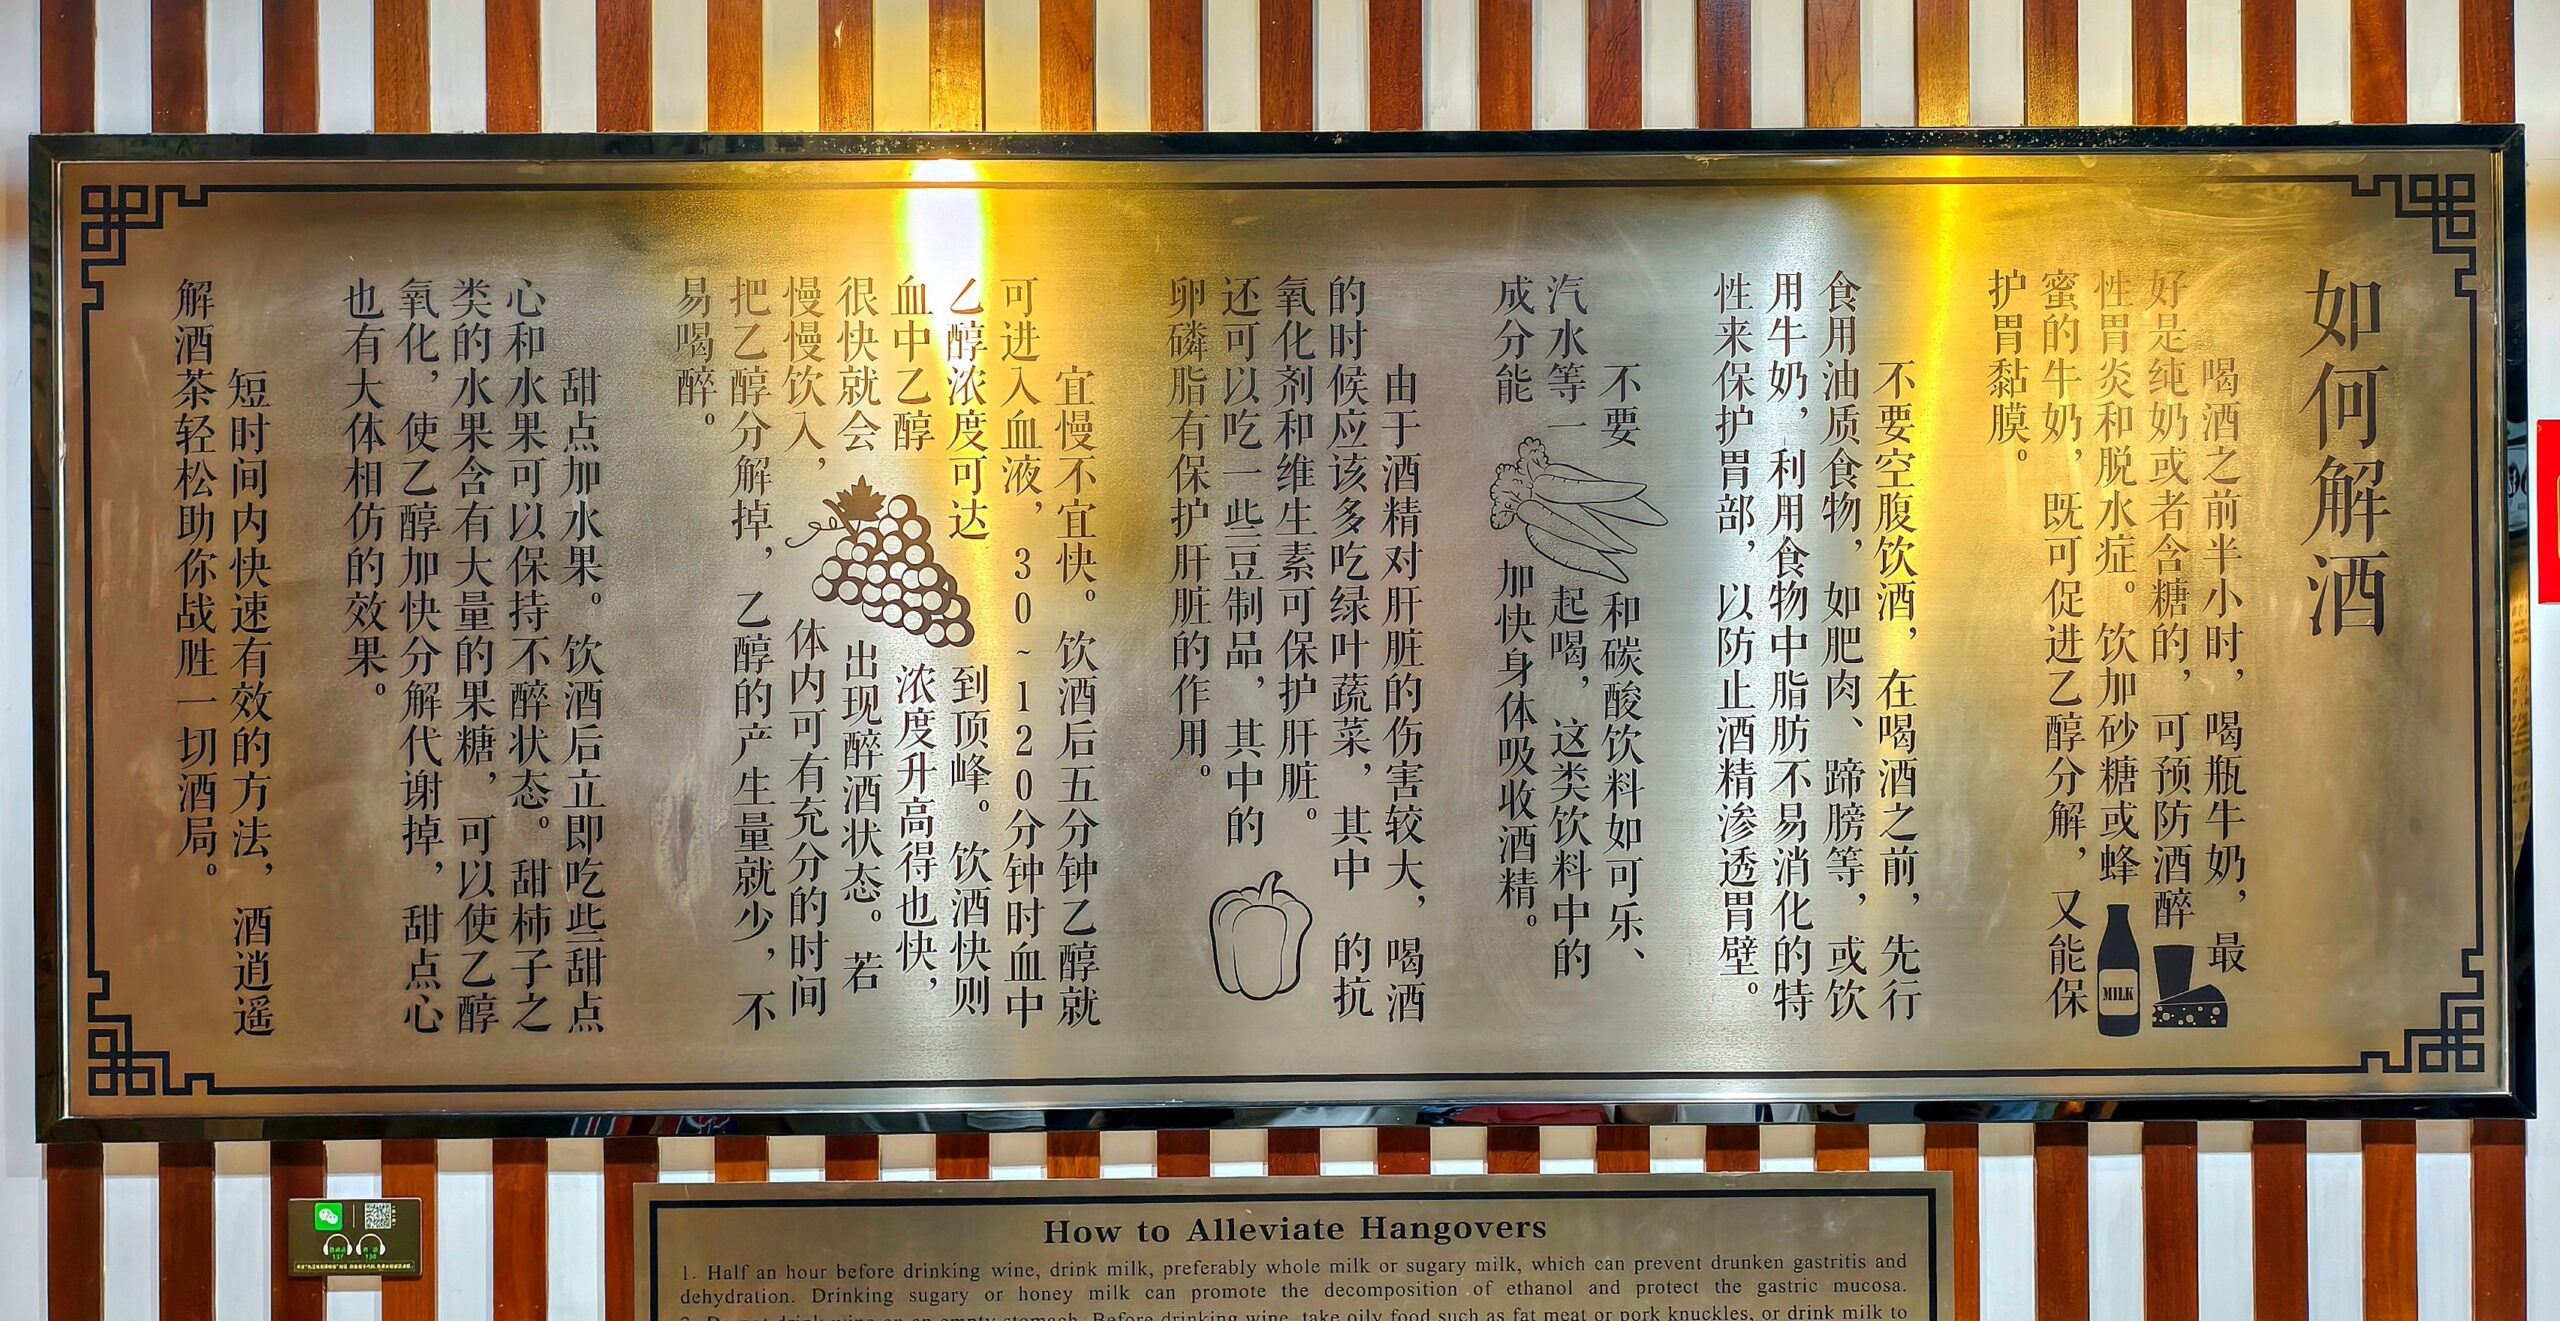 如何解酒
喝酒之前半小时，喝瓶牛奶，最
好是纯奶或者含糖的，可预防酒醉
性胃炎和脱水症。饮加砂糖或蜂
蜜的牛奶，既可促进乙醇分解，又能保
护胃黏膜。
不要空腹饮酒，在喝酒之前，先行
食用油质食物，如肥肉、蹄膀等，或饮
用牛奶，利用食物中脂肪不易消化的特
性来保护胃部，以防止酒精渗透胃壁。
不要和碳酸饮料如可乐、
汽水等一起喝，这类饮料中的
成分能加快身体吸收酒精。
由于酒精对肝脏的伤害较大，喝酒
的时候应该多吃绿叶蔬菜，其中的抗
氧化剂和维生素可保护肝脏。
还可以吃一些豆制品，其中的
卵磷脂有保护肝脏的作用。
宜慢不宜快。饮酒后五分钟乙醇就
可进入血液，30~120分钟时血中
乙醇浓度可达到顶峰。饮酒快则
血中乙醇浓度升高得也快，
很快就会出现醉酒状态。若
慢慢饮入，体内可有充分的时间
把乙醇分解掉，乙醇的产生量就少，不
易喝醉。
甜点加水果。饮酒后立即吃些甜点
心和水果可以保持不醉状态。甜柿子之
类的水果含有大量的果糖，可以使乙醇
氧化，使乙醇加快分解代谢掉，甜点心
也有大体相仿的效果。
短时间内快速有效的方法，酒逍遥
解酒茶轻松助你战胜一切酒局。
MILK
How to Alleviate Hangovers
1. Half an hour before drinking wine, drink milk, preferably whole milk or sugary milk, which can prevent drunken gastritis and
dehydration. Drinking sugary or honey milk can promote the decomposition of ethanol and protect the gastric mucosa.
2. Do not drink wine on an empty stomach. Before drinking wine, take oily food such as fat meat or pork knuckles, or drink milk to